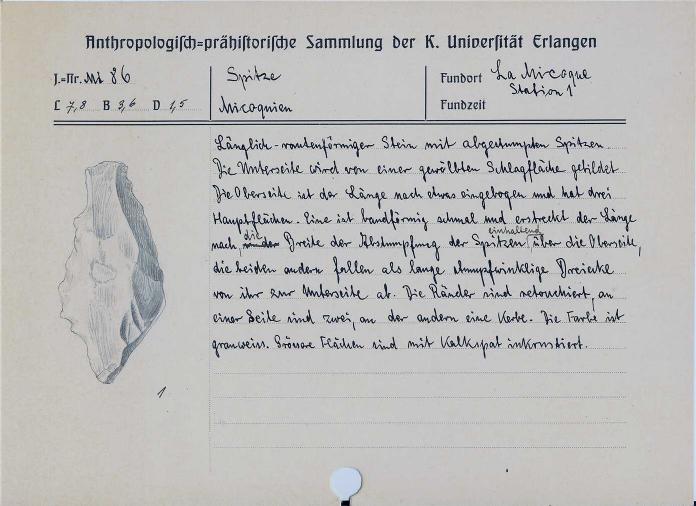 Anthropologisch=prähistorische Sammlung der K. Universität Erlangen
J.=Nr. Mi 86
Spitze
Fundort La Micoque
Station 1
L 7,8 B 3,6 D 1,5
Micoquien
Fundzeit
Länglich-rautenförmiger Stein mit abgestumpften Spitzen.
Die Unterseite wird von einer gewölbten Schlagfläche gebildet
Die Oberseite ist der Länge nach etwas eingebogen und hat drei
Hauptflächen. Eine ist bandförmig schmal und erstreckt der Länge
nach, die Breite der Abstumpfung der Spitzen einhaltend über die Oberseite,
die beiden andern fallen als lange stumpfwinklige Dreiecke
von ihr zur Unterseite ab. Die Ränder sind retouchiert, an
einer Seite sind zwei, an der andern eine Kerbe. Die Farbe ist
grauweiss. Grössere Flächen sind mit Kalkspat inkrustiert.
1